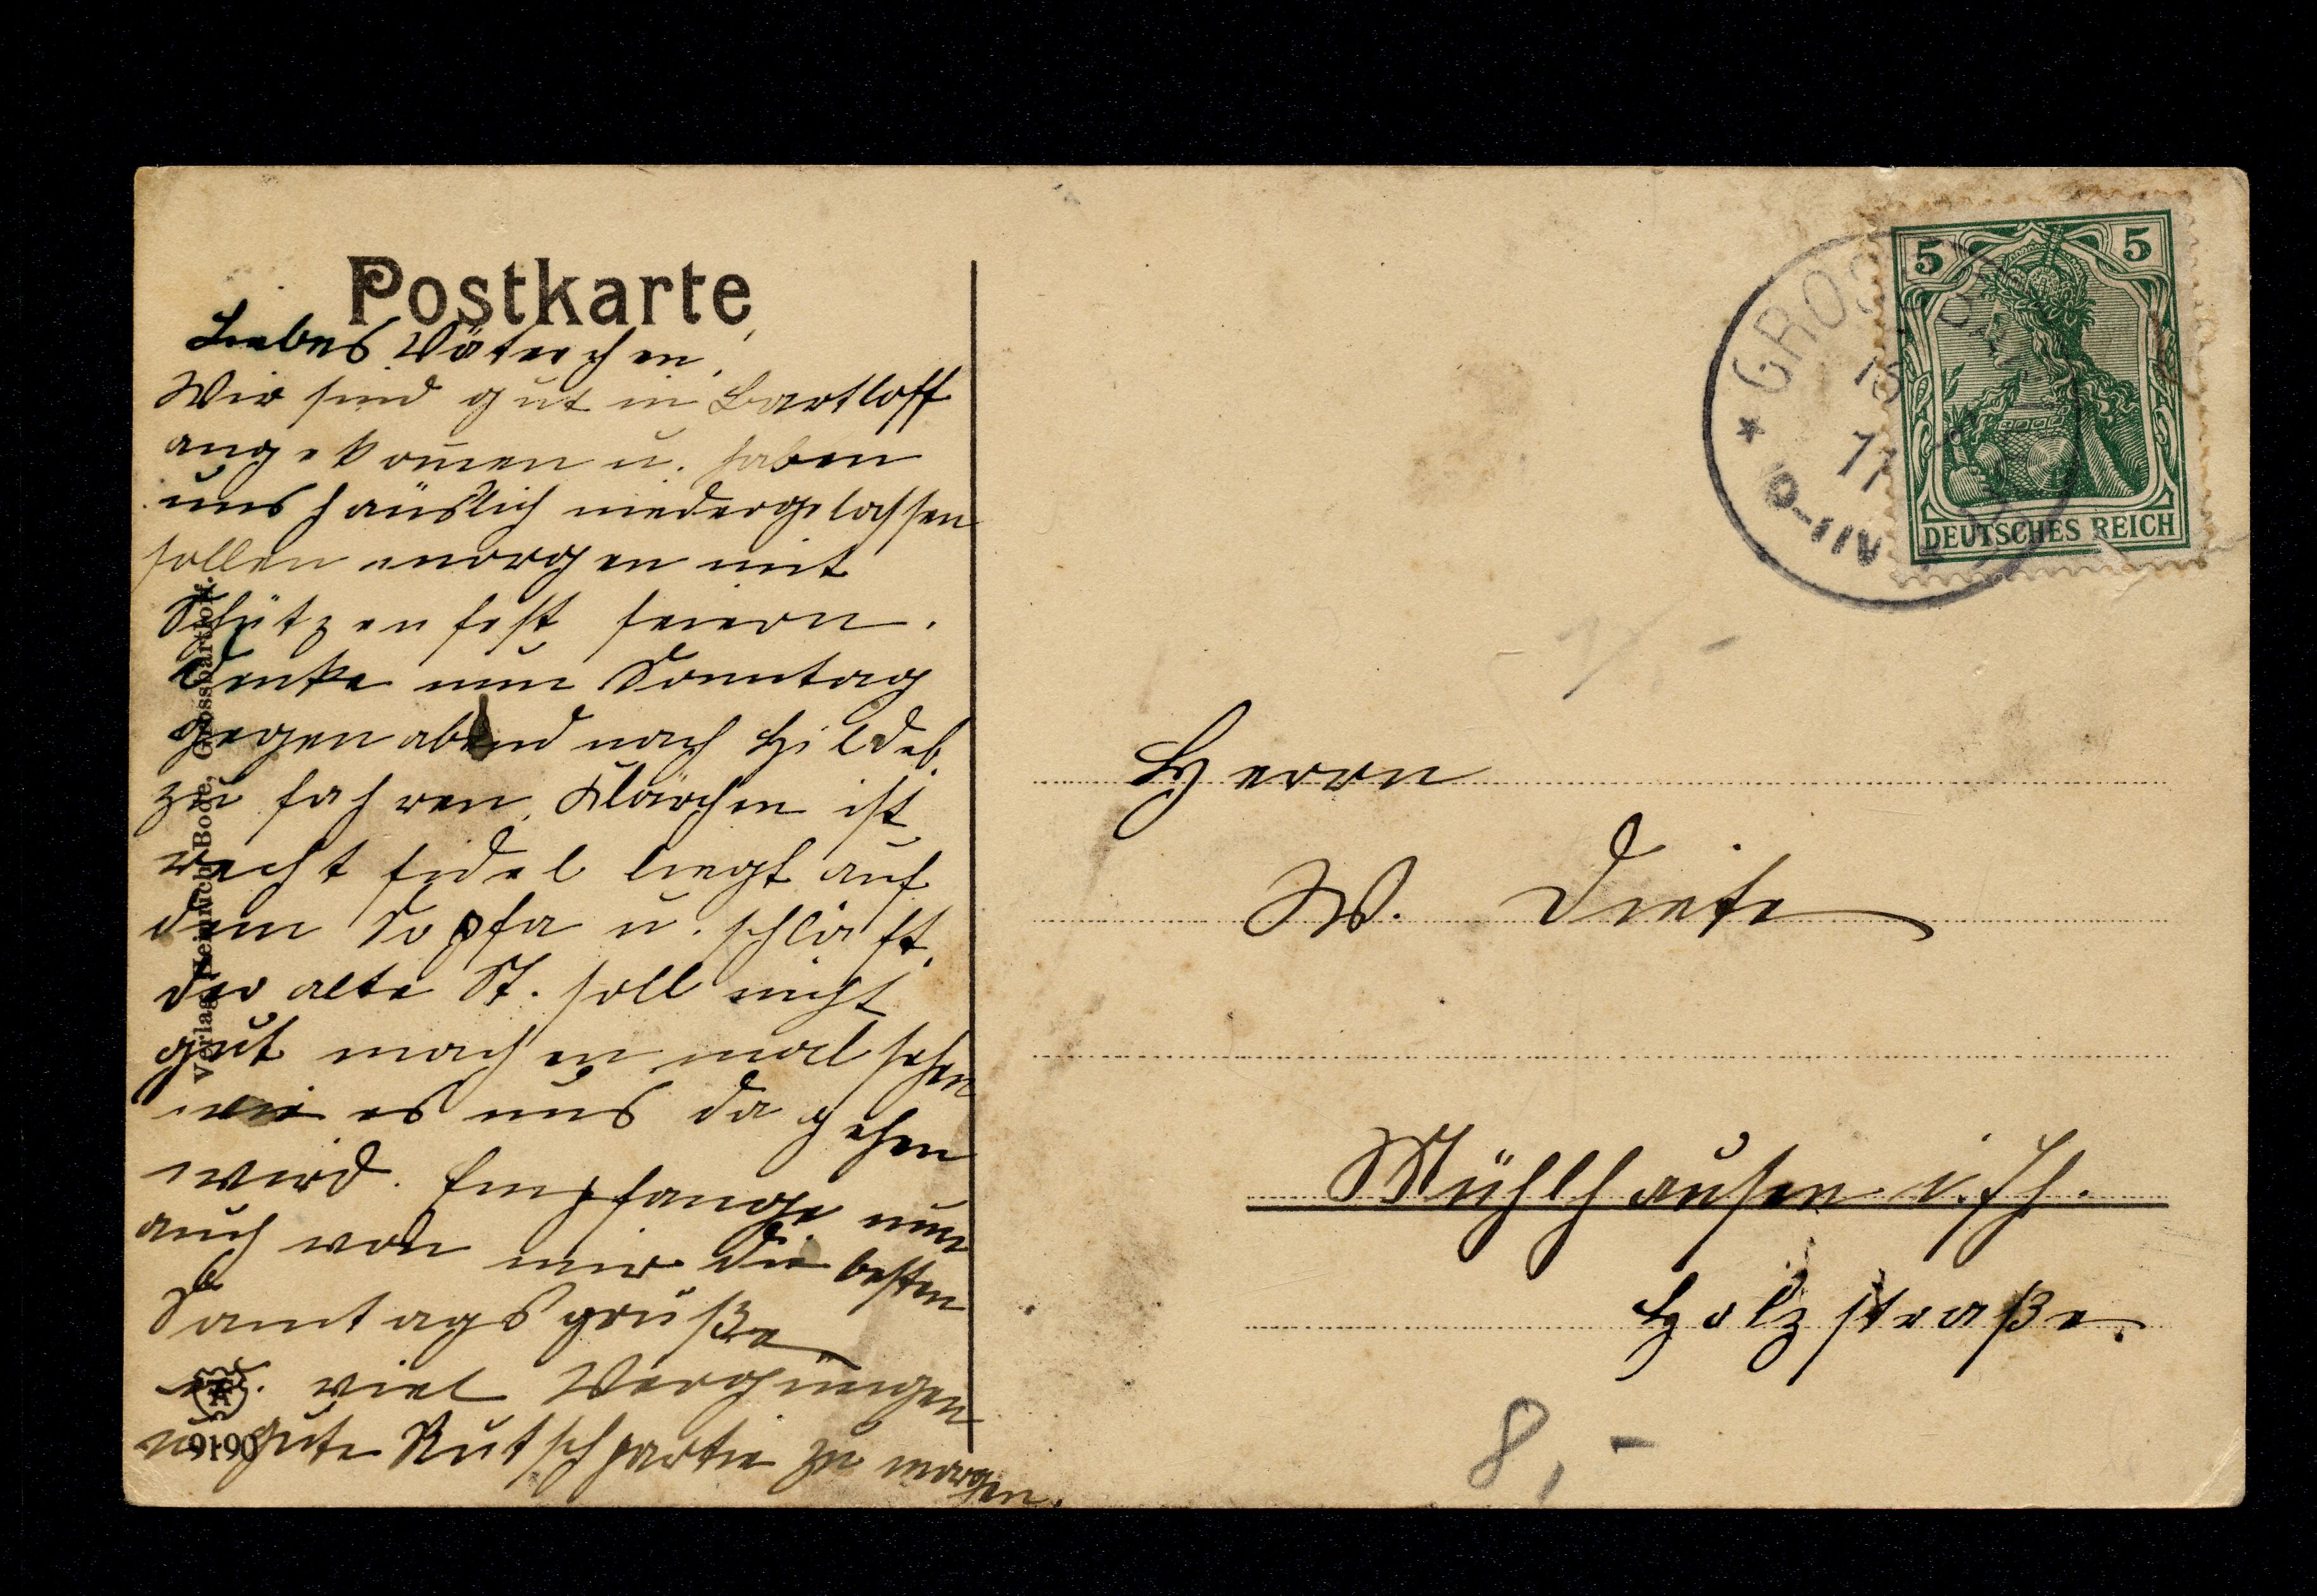 Postkarte
Liebes Väterchen!
Wir sind gut in Bartloff
angekom̄en u. haben
uns häuslich niedergelassen
sollen morgen mit
Schützenfest feiern.
Denke nun Sonntag
gegen abend nach Hildeb.
zu fahren. Klärchen ist
recht fidel liegt auf
dem Sopfa u. schläft.
der alte St. soll nicht
gut machen mal sehen
wie es uns da gehen
wird. Empfange nun
auch von mir die besten
Som̄tagsgrüße
u. viel Vergnügen
u. gute Rutschpartie zu morgen.
Verlag Heinrich Bode, Grossbartloff.
9190
GROSS
5 5
DEUTSCHES REICH
Herrn
W. Diete
Mühlhausen i. Th.
Holzstraße.
8,-